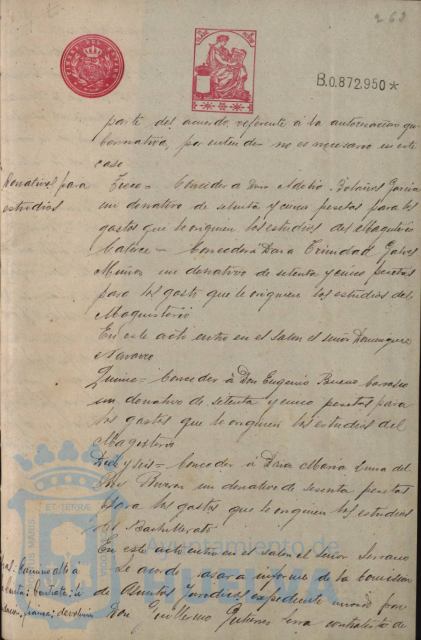 268
B.0.872.950*
parte del acuerdo, referente á la autorizacion gu-
bernativa, por entender no es necesario en este
caso
Donativos para
estudios
Trece = Conceder a Don Adelio Bolaños Garcia
un donativo de setenta y cinco pesetas para los
gastos que le originen los estudios del Magisterio
Catorce = Conceder á Doña Trinidad
Muñoz un donativo de setenta y cinco pesetas
para los gastos que le originen los estudios del
Magisterio
En este acto entro en el Salon el señor Dominguez
Navarro
Quince = Conceder á Don Eugenio Bueno
un donativo de setenta y cinco pesetas para
los gastos que le originen los estudios del
Magisterio
Diez y seis = Conceder á Doña Maria Luna del
un donativo de sesenta pesetas
para los gastos que le originen los estudios
del Bachillerato
En este acto entro en el salon el señor Serrano
Se acordó á informe de la Comisión
de Asuntos Juridicos expediente
Don Guillermo Gutierrez contratista de
Ayuntamiento de
HUELVA